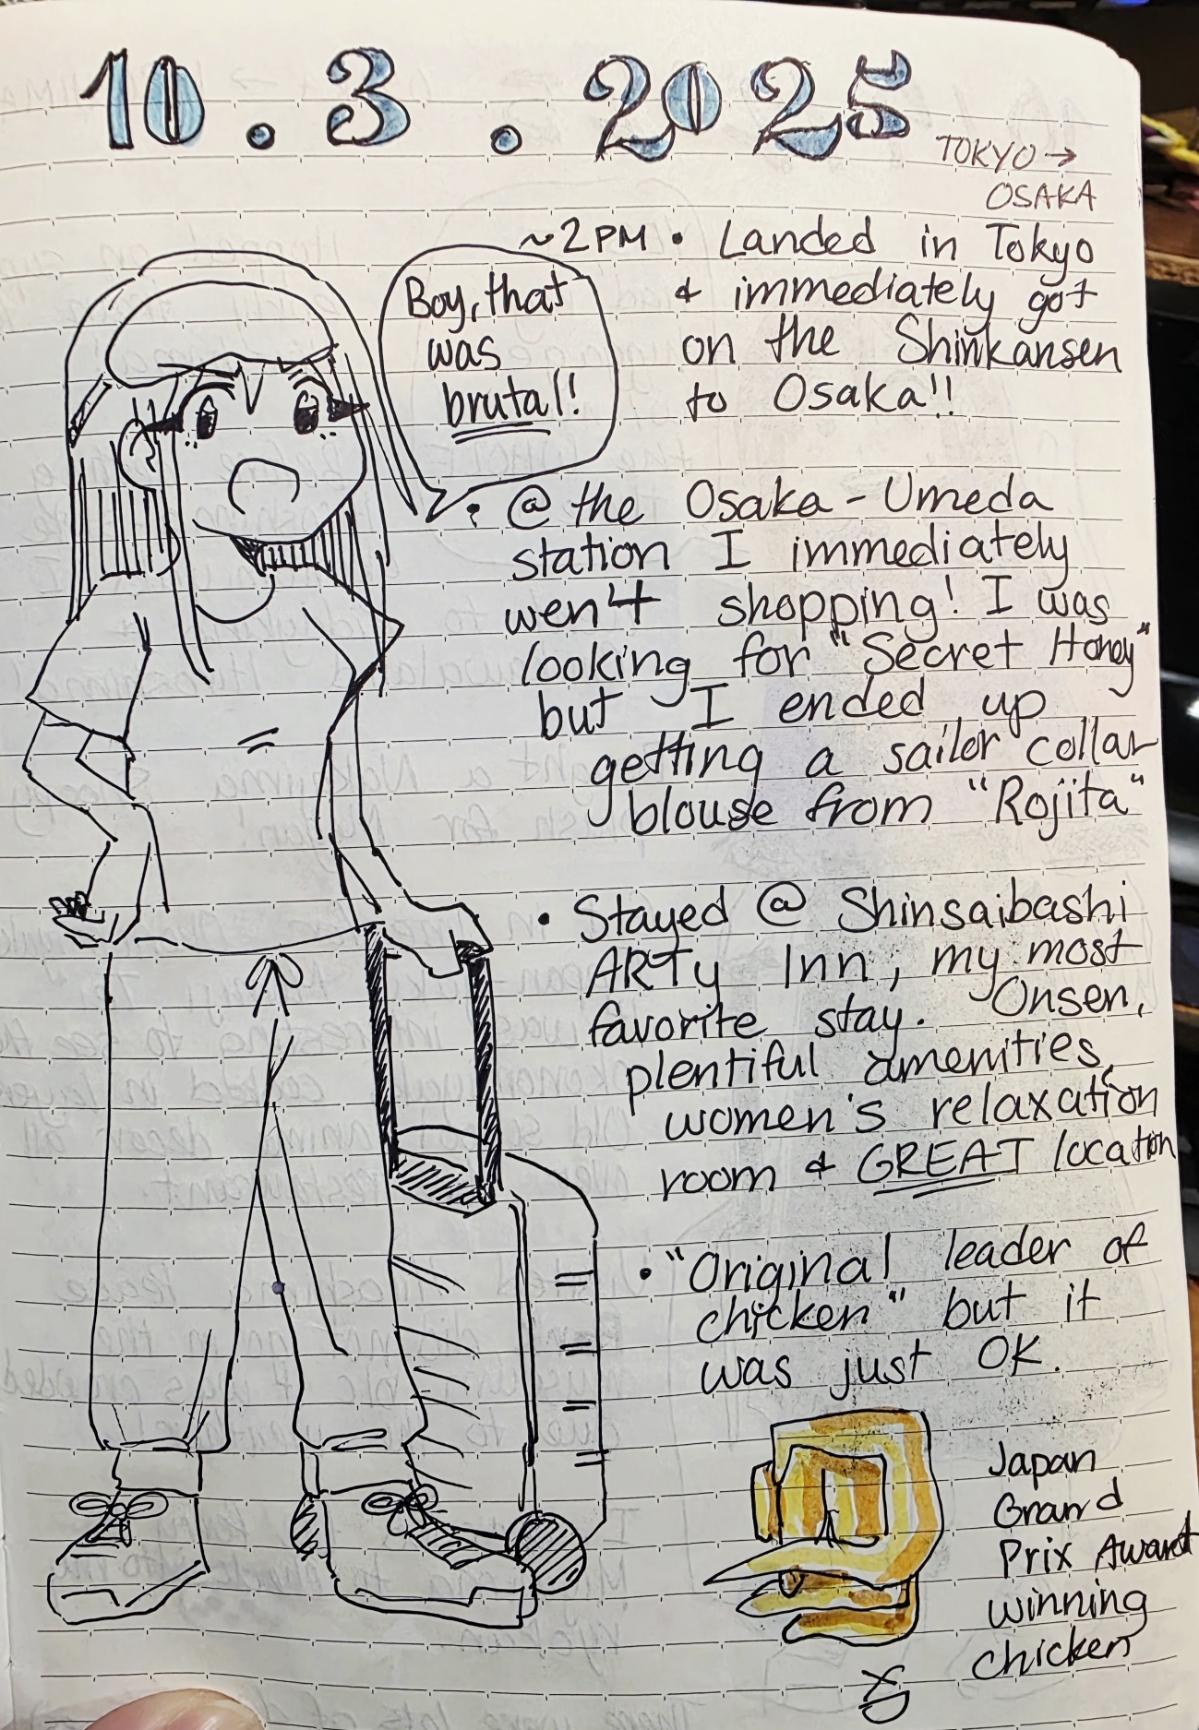 10.3.2025
TOKYO →
OSAKA
~2PM • Landed in Tokyo
& immediately got
on the Shinkansen
to Osaka!!
Boy, that
was
brutal!
• @ the Osaka-Umeda
station I immediately
wen't shopping! I was
looking for "Secret Honey"
but I ended up
getting a sailor collar
blouse from "Rojita"
• Stayed @ Shinsaibashi
ARTy Inn, my most
favorite stay. Onsen,
plentiful amenities,
women's relaxation
room & GREAT location
• "Original leader of
chicken" but it
was just OK.
Japan
Grand
Prix Award
winning
chicken